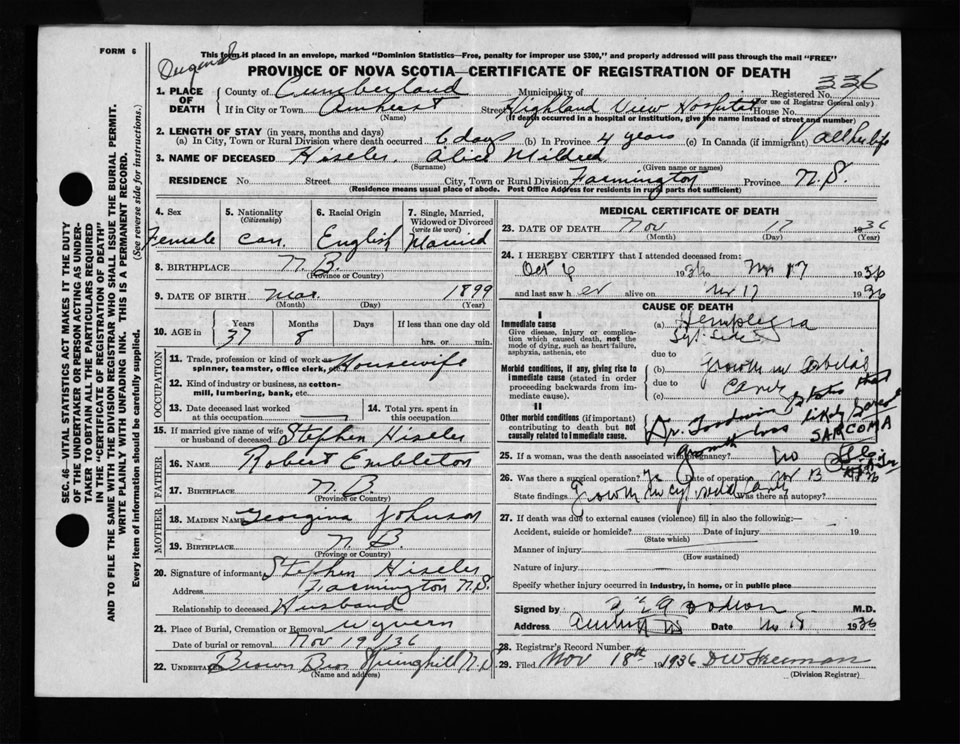 FORM 6
This form if placed in an envelope, marked "Dominion Statistics—Free, penalty for improper use $300," and properly addressed will pass through the mail "FREE"
PROVINCE OF NOVA SCOTIA—CERTIFICATE OF REGISTRATION OF DEATH
336
1. PLACE OF DEATH
County of Cumberland Municipality of Registered No.
(For use of Registrar General only)
If in City or Town Amherst Street Highland View Hospital House No.
(Name) (If death occurred in a hospital or institution, give the name instead of street and number)
2. LENGTH OF STAY (in years, months and days)
(a) In City, Town or Rural Division where death occurred 6 days (b) In Province 4 years (c) In Canada (if immigrant) all her life
3. NAME OF DECEASED Hiseler Alice Mildred
(Surname) (Given name or names)
RESIDENCE No. Street City, Town or Rural Division Farmington Province N.S.
(Residence means usual place of abode. Post Office Address for residents in rural parts not sufficient)
SEC. 46—VITAL STATISTICS ACT MAKES IT THE DUTY
OF THE UNDERTAKER OR PERSON ACTING AS UNDER-
TAKER TO OBTAIN ALL THE PARTICULARS REQUIRED
IN THE "CERTIFICATE OF REGISTRATION OF DEATH"
AND TO FILE THE SAME WITH THE DIVISION REGISTRAR WHO SHALL ISSUE THE BURIAL PERMIT.
WRITE PLAINLY WITH UNFADING INK. THIS IS A PERMANENT RECORD.
Every item of information should be carefully supplied. (See reverse side for instructions.)
4. Sex
Female
5. Nationality
(Citizenship)
Can.
6. Racial Origin
English
7. Single, Married, Widowed or Divorced
(write the word)
Married
8. BIRTHPLACE N.B.
(Province or Country)
9. DATE OF BIRTH Mar. 1899
(Month) (Day) (Year)
10. AGE in Years Months Days If less than one day old
37 8 hrs. or min.
OCCUPATION
11. Trade, profession or kind of work as spinner, teamster, office clerk, etc. Housewife
12. Kind of industry or business, as cotton-mill, lumbering, bank, etc.
13. Date deceased last worked at this occupation
14. Total yrs. spent in this occupation
15. If married give name of wife or husband of deceased Stephen Hiseler
FATHER
16. NAME Robert Embleton
17. BIRTHPLACE N.B.
(Province or Country)
MOTHER
18. MAIDEN NAME Georgina Johnson
19. BIRTHPLACE N.B.
(Province or Country)
20. Signature of informant Stephen Hiseler
Address Farmington N.S.
Relationship to deceased Husband
21. Place of Burial, Cremation or Removal Wyvern
Date of burial or removal Nov 19/36
22. UNDERTAKER Brown Bros Springhill N.S.
(Name and address)
MEDICAL CERTIFICATE OF DEATH
23. DATE OF DEATH Nov 17 1936
(Month) (Day) (Year)
24. I HEREBY CERTIFY that I attended deceased from:
Oct 6 1936 to Nov 17 1936
and last saw her alive on Nov 17 1936
CAUSE OF DEATH
I
Immediate cause
Give disease, injury or complication which caused death, not the mode of dying, such as heart failure, asphyxia, asthenia, etc
(a) Hemiplegia
due to
Morbid conditions, if any, giving rise to immediate cause (stated in order proceeding backwards from immediate cause).
(b) Growth in Orbital
due to Cavity
(c)
II
Other morbid conditions (important) contributing to death but not causally related to immediate cause.
Dr. Goodwin states that
growth was likely
SARCOMA
25. If a woman, was the death associated with pregnancy? No
26. Was there a surgical operation? Date of operation
State findings Growth in Was there an autopsy?
27. If death was due to external causes (violence) fill in also the following:—
Accident, suicide or homicide? Date of injury 19
(State which)
Manner of injury
(How sustained)
Nature of injury
Specify whether injury occurred in industry, in home, or in public place
Signed by M.D.
Address Amherst N.S. Date Nov 18 1936
28. Registrar's Record Number
29. Filed Nov 18th 1936 D W Freeman
(Division Registrar)